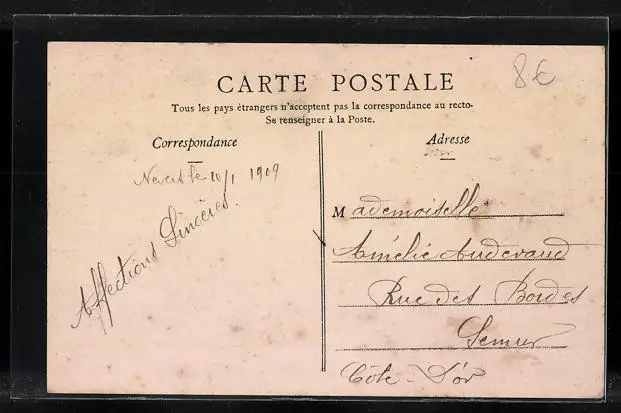 8€
CARTE POSTALE
Tous les pays étrangers n'acceptent pas la correspondance au recto-
Se renseigner à la Poste.
Correspondance
Adresse
Nevers le 10/1 1909
Affections Sincères.
Mademoiselle
Amélie Audevaud
Rue des Bordes
Semur
Côte-d'or